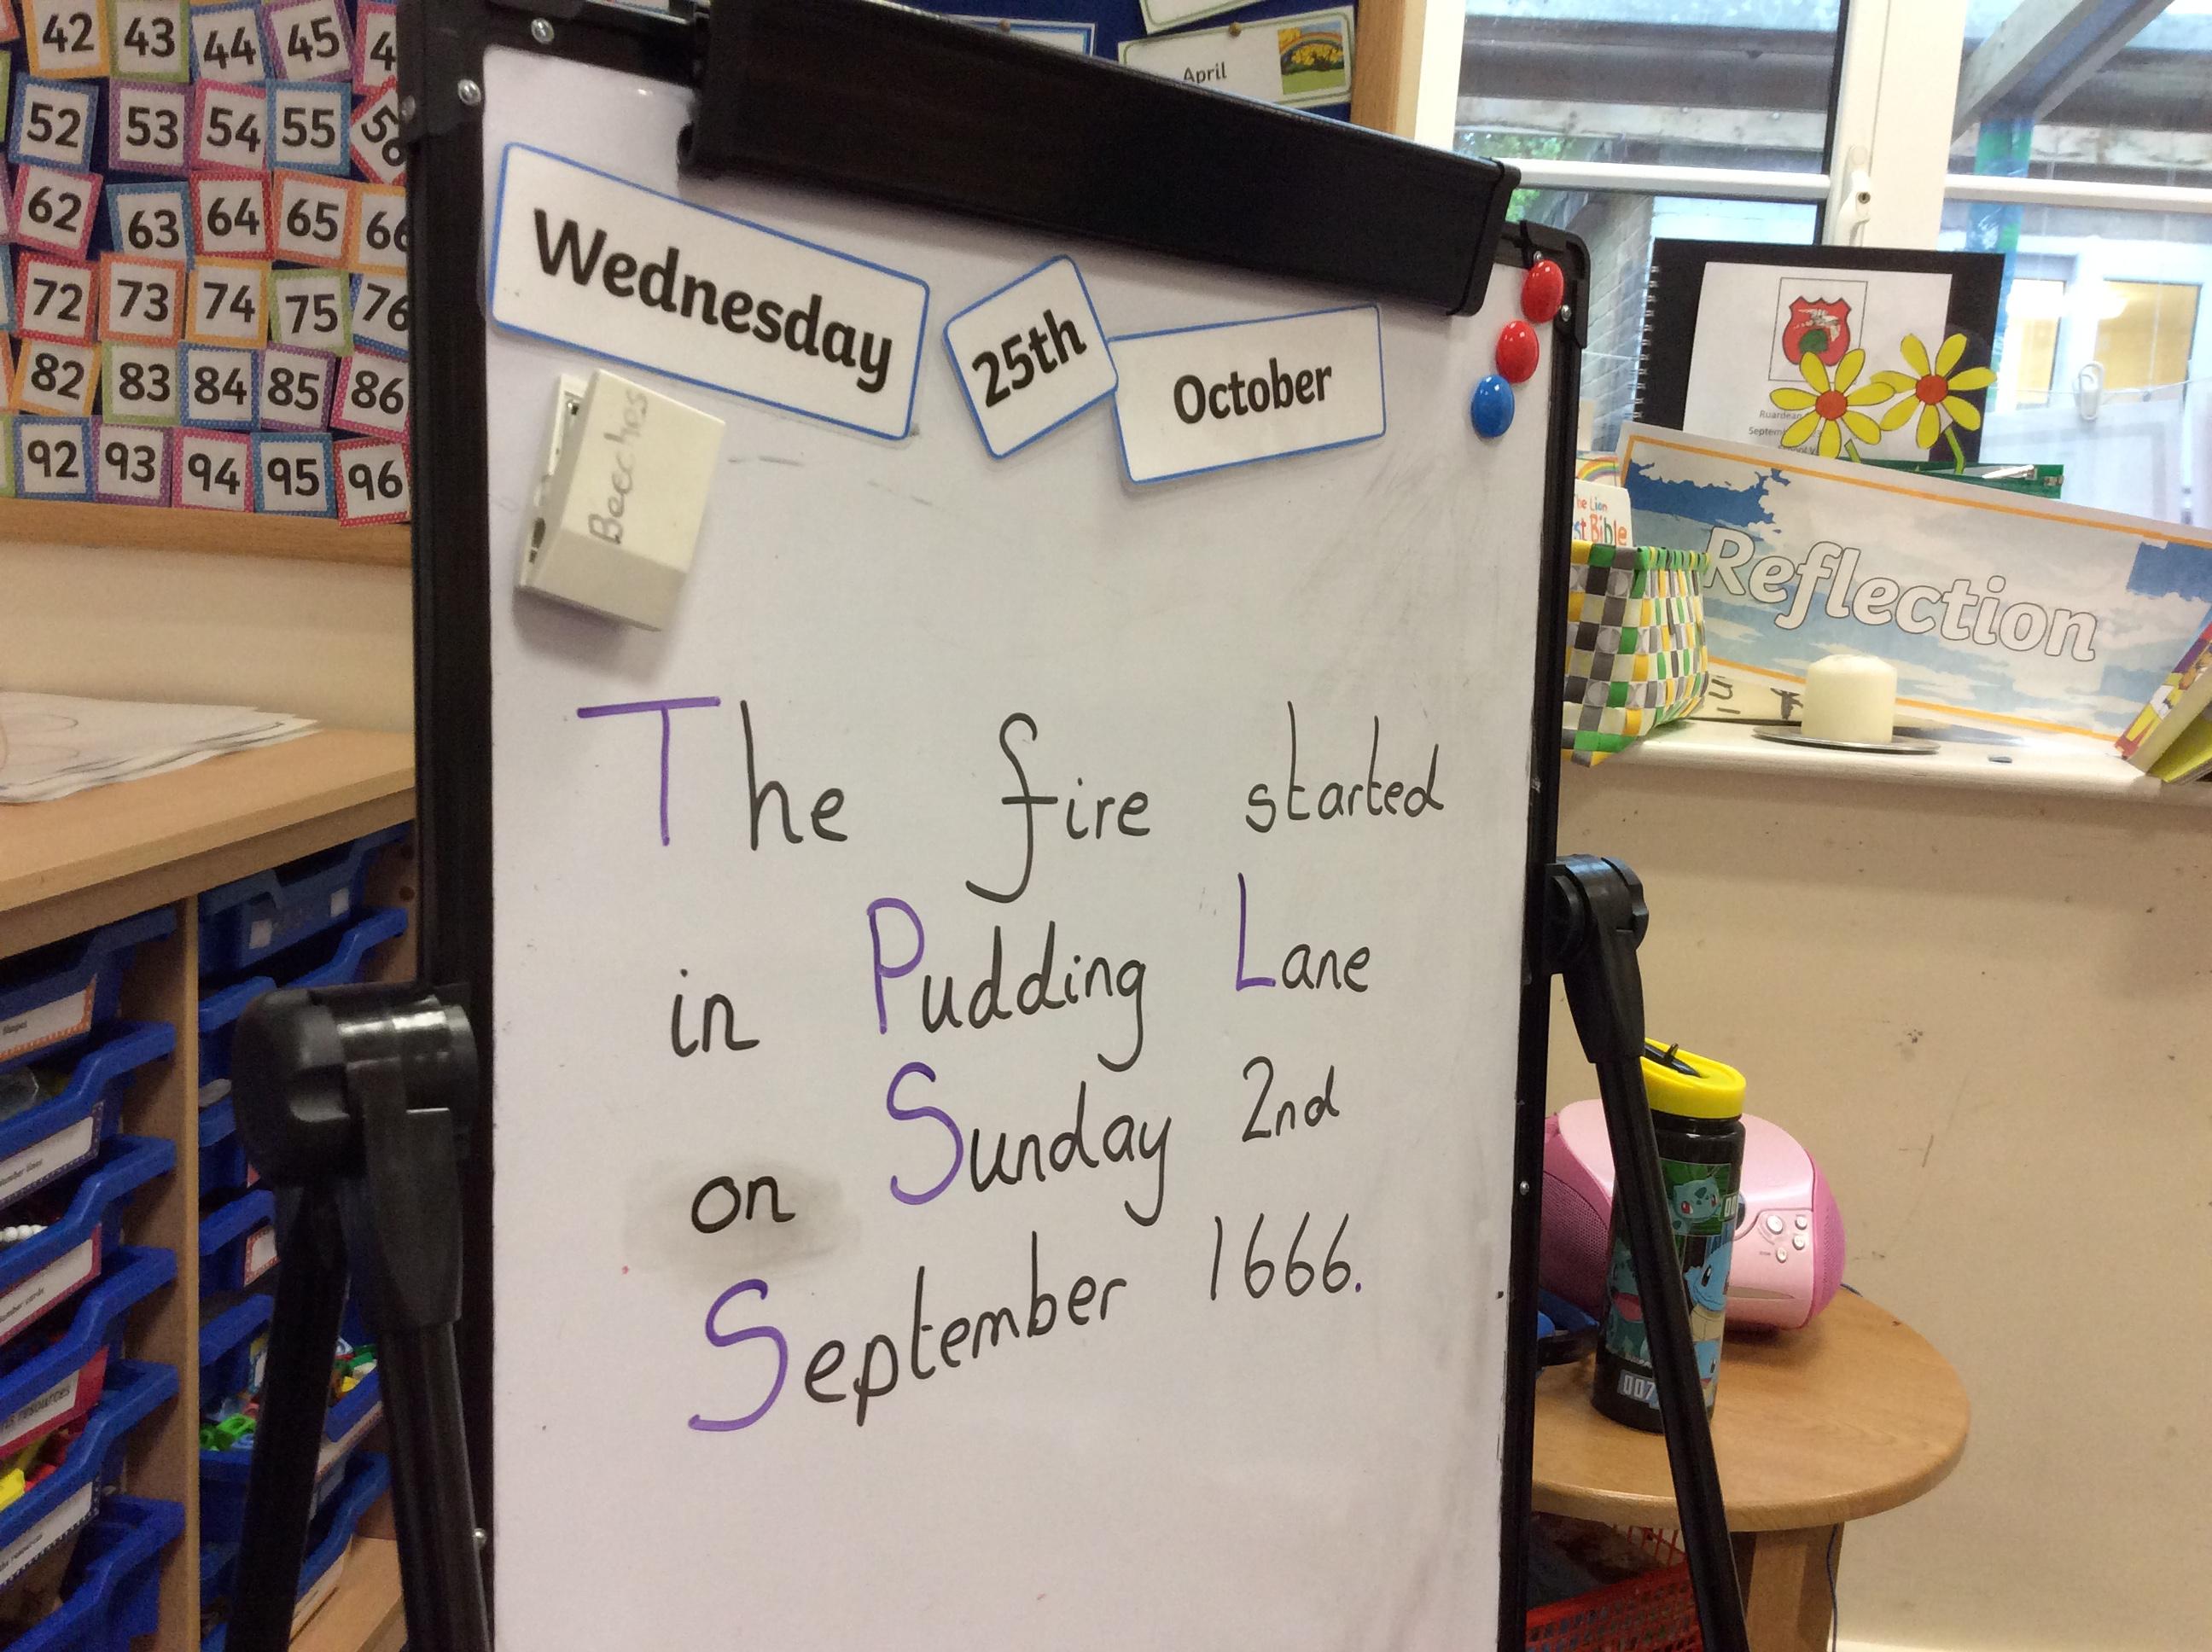 42 43 44 45
52 53 54 55 56
62 63 64 65 66
72 73 74 75 76
82 83 84 85 86
92 93 94 95 96
April
Wednesday 25th October
Beeches
The fire started
in Pudding Lane
on Sunday 2nd
September 1666.
Ruardean
The Lion
Bible
Reflection
007